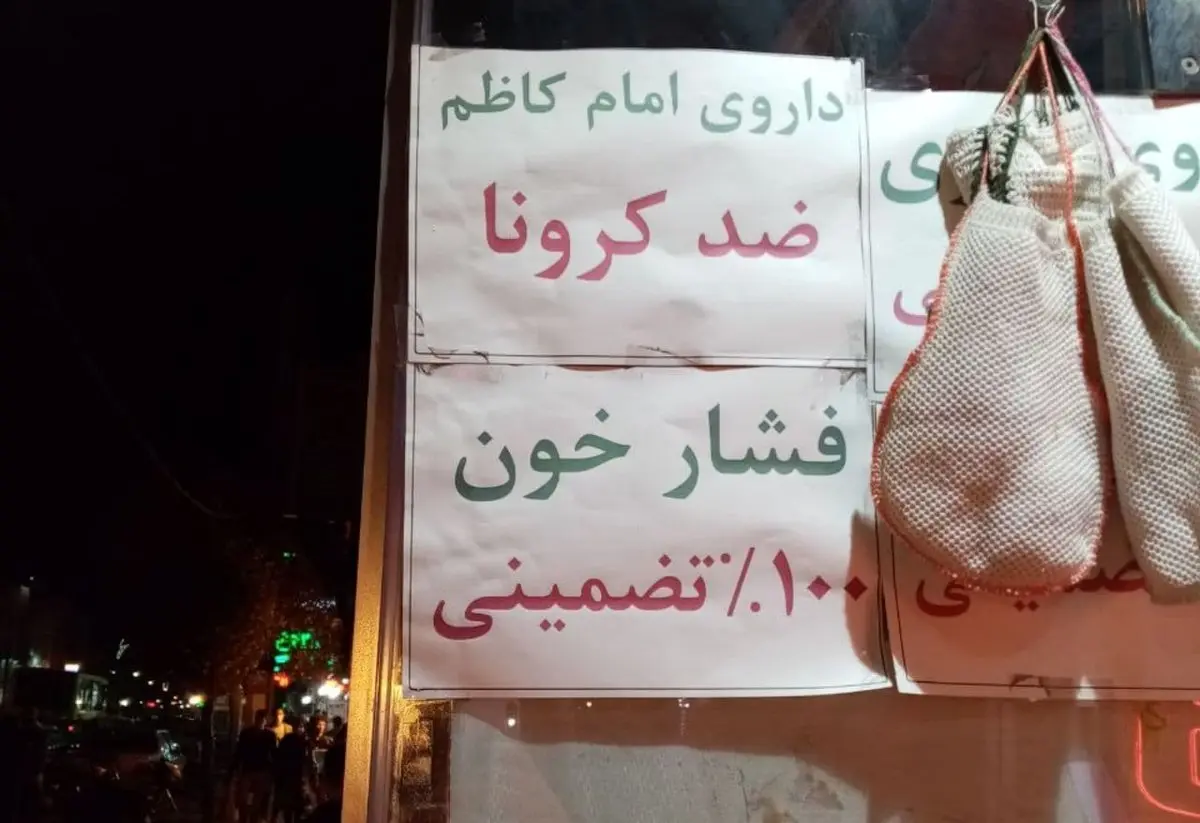 داروی امام کاظم
ضد کرونا
فشار خون
۱۰۰٪ تضمینی